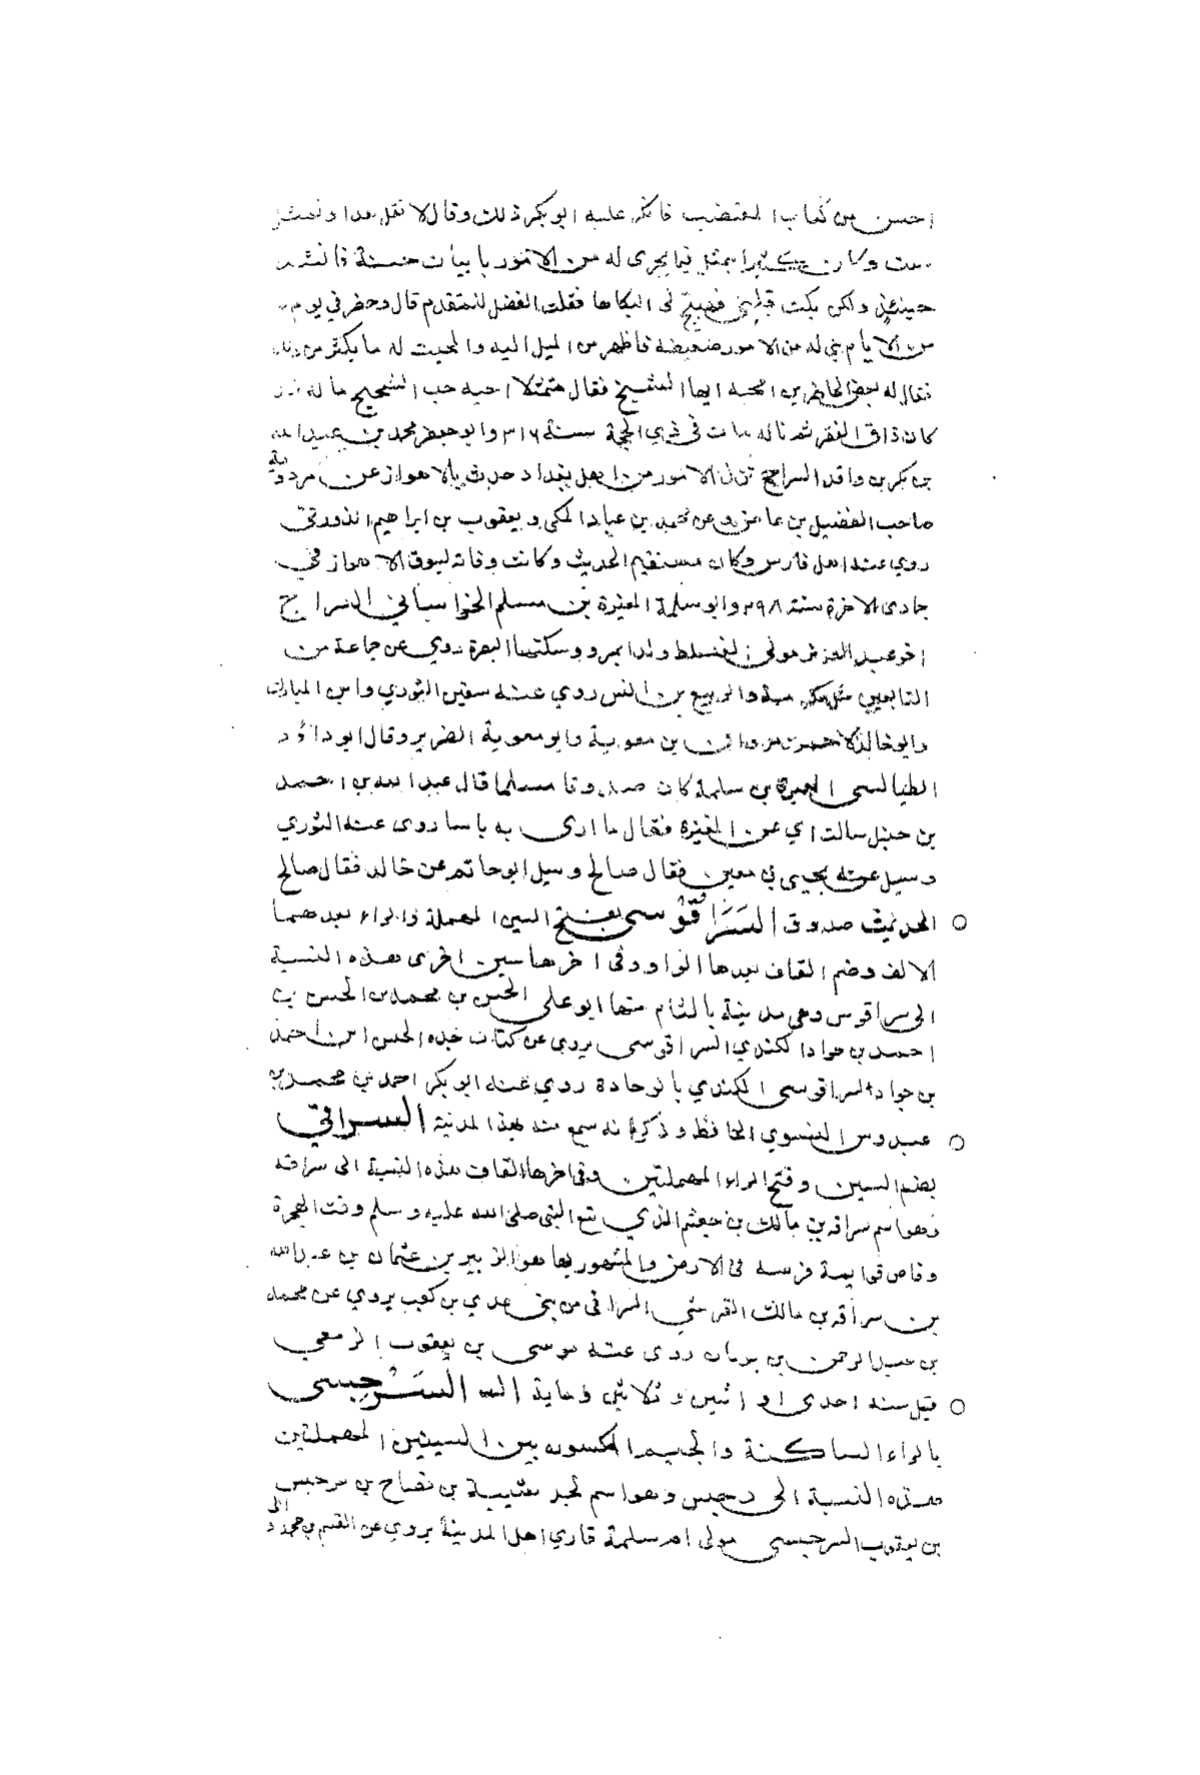 احسن من كتاب المقتضب فانكر عليه ابو بكر ذلك وقال لا تقل هذا وتمثل
ببيت وكان كثيرا يتمثل فيما يجرى له من الامور بابيات حسنة فانشد
حينئذ ولكن بكت قبلى فهيج لى البكا بكاها فقلت الفضل للمتقدم قال وحضر في يوم
من الايام بنى له من الامور فاظهر من الميل اليه والمحبة له ما يكثر من ذلك
فقال له بعض الحاضرين اتحبه ايها الشيخ فقال متمثلا احبه حب الشحيح ماله قد
كان ذاق الفقر ثم ناله مات فى ذى الحجة سنة ٣١٦ وابو جعفر محمد بن عبيد الله
بن بكر بن واقد السراج من اهل بغداد حدث بالاهواز عن مردويه
صاحب الفضيل بن عياض وعن محمد بن عباد المكى ويعقوب بن ابراهيم الدورقى
روي عنه اهل فارس وكان مستقيم الحديث وكانت وفاته بسوق الاهواز في
جمادى الاخرة سنة ٢٩٨ وابو سلمة المغيرة بن مسلم الخراسانى السراج
اخو عبد العزيز مولى ولدا بمرو وسكنها البصرة روي عن جماعة من
التابعين مثل عكرمة والربيع بن انس روي عنه سفين الثوري وابن المبارك
وابو خالد الاحمر ومروان بن معوية وابو معوية الضرير وقال ابو داؤد
الطيالسى المغيرة بن سلمة كان صدوقا مسلما قال عبد الله بن احمد
بن حنبل سالت ابي عن المغيرة فقال ما ارى به باسا روى عنه الثوري
وسيل عنه يحيى بن معين فقال صالح وسيل ابو حاتم عن خالد فقال صالح
الحديث صدوق السَرَاقُوْسى بفتح السين المهملة والراء بعدهما
الالف وضم القاف بعدها الواو وفى اخرها سين اخرى هذه النسبة
الى سراقوس وهى مدينة بالشام منها ابو على الحسن بن محمد بن الحسن بن
احمد بن جواد الكندي السراقوسى يروى عن كتاب جده الحسن بن احمد
بن جواد السراقوسى الكندي بالوجادة روي عنه ابو بكر احمد بن محمد بن
عبدوس النسوي الحافظ وذكر انه سمع منه بهذا المدينة السراقيّ
بضم السين وفتح الراء المهملتين وفى اخرها القاف هذه النسبة الى سراقة
وهو اسم سراقة بن مالك بن جعشم الذي تبع النبى صلى الله عليه وسلم وقت الهجرة
وغاص قوايمة فرسه فى الارض والمشهور بها هو الزبير بن عثمان بن عبد الله
بن سراقة بن مالك القرشي السراقى من بنى عدي بن كعب يروي عن محمد
بن عبد الرحمن بن ثوبان روى عنه موسى بن يعقوب الزمعي
قتل سنه احدى او اثنين وثلاثين ومايةة السَرْجِسى
بالراء الساكنة والجيم المكسوره بين السينين المهملتين
هذه النسبة الى سرجس وهو اسم لجد شيبة بن نصاح بن سرجس
بن يعقوب السرجسى مولى ام سلمة قاري اهل المدينة يروي عن القسم بن محمد و